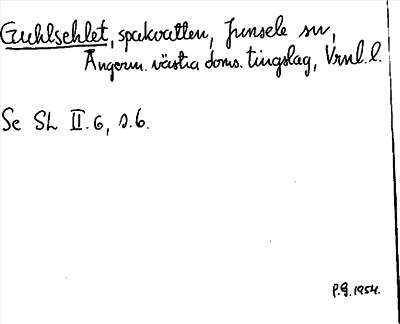 Guhlsehlet, spakvatten, Junsele sn,
Ångerm. västra doms. tingslag, Vrnl.l.
Se SL II.6, s.6.
P.G. 1954.